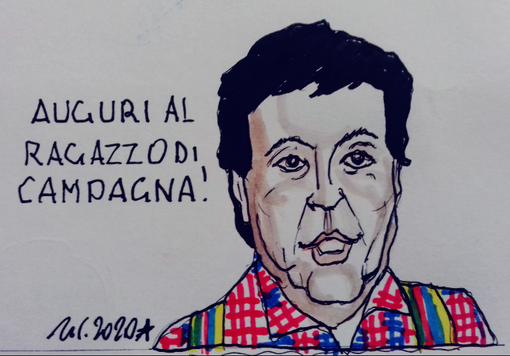 AUGURI AL
RAGAZZO DI
CAMPAGNA!